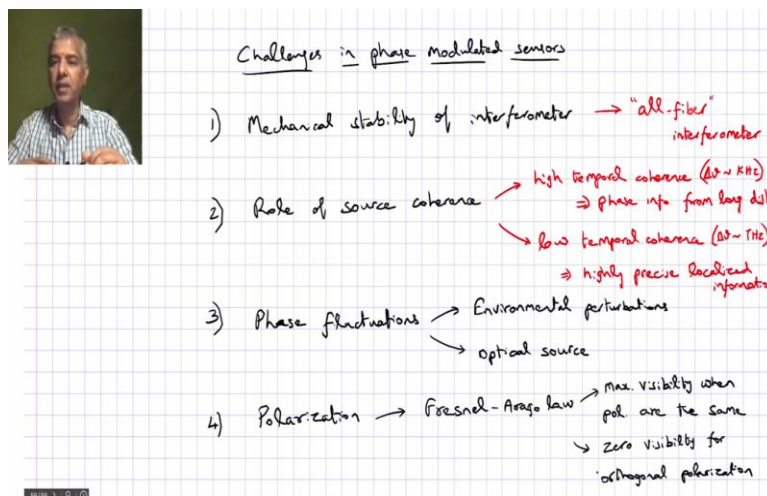 Challenges in phase modulated sensors
1) Mechanical stability of interferometer → "all-fiber"
interferometer
high temporal coherence (Δν ~ KHz)
2) Role of source coherence
⇒ phase info. from long dist
low temporal coherence (Δν ~ THz)
⇒ highly precise localized
informatio
3) Phase fluctuations → Environmental perturbations
→ Optical source
4) Polarization → Fresnel-Arago law → max. visibility when
pol. are the same
→ zero visibilty for
orthogonal polarization